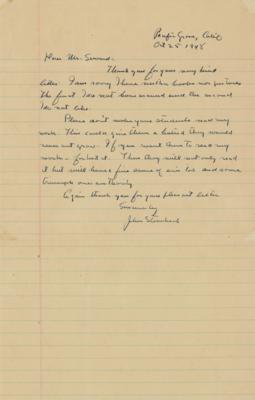 Pacific Grove, Calif
Oct 25 1948
Dear Mr.
Thank you for your very kind
letter. I am sorry I have neither books nor pictures
the first I do not have around and the second
I do not like.
Please don't make your students read my
work. This could give them a hatred they would
never out grow. If you want them to read my
work - forbid it. Then they will not only read
it but will have a fine sense of sin too and some
triumph over authority
Again thank you for your pleasant letter
Sincerely
John Steinbeck